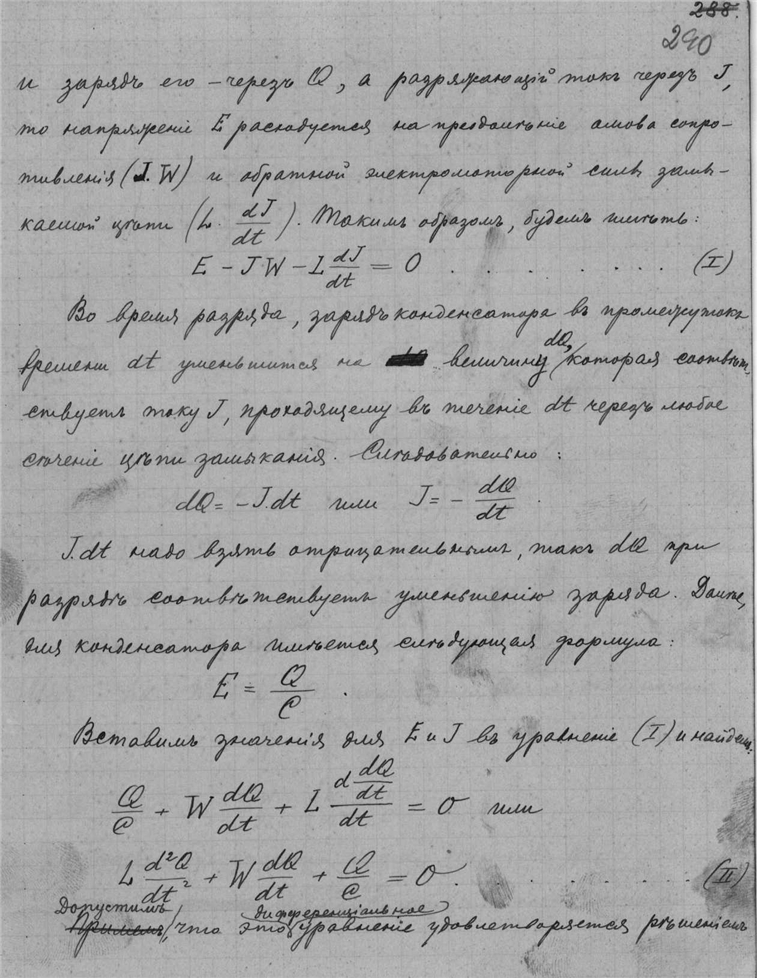 288.
290
и зарядъ его – черезъ Q, а разряжающій токъ черезъ J,
то напряженіе E расходуется на преодолѣніе омова сопро-
тивленія (J.W) и обратной электромоторной силы замы-
каемой цѣпи (L. dJ/dt). Такимъ образомъ, будемъ имѣть:
E – JW – L dJ/dt = 0 . . . . . . . . (I)
Во время разряда, зарядъ конденсатора въ промежутокъ
времени dt уменьшится на величину dQ, которая соотвѣт-
ствуетъ току J, проходящему въ теченіе dt черезъ любое
сѣченіе цѣпи замыканія. Слѣдовательно:
dQ = –J.dt или J = – dQ/dt.
J.dt надо взять отрицательнымъ, такъ dQ при
разрядѣ соотвѣтствуетъ уменьшенію заряда. Далѣе,
для конденсатора имѣется слѣдующая формула:
E = Q/C .
Вставимъ значенія для E и J въ уравненіе (I) и найдемъ:
Q/C + W dQ/dt + L d dQ/dt/dt = 0 или
L d²Q/dt² + W dQ/dt + Q/C = 0 . . . . . . . (II)
Допустимъ, что это дифференціальное уравненіе удовлетворяется рѣшеніемъ